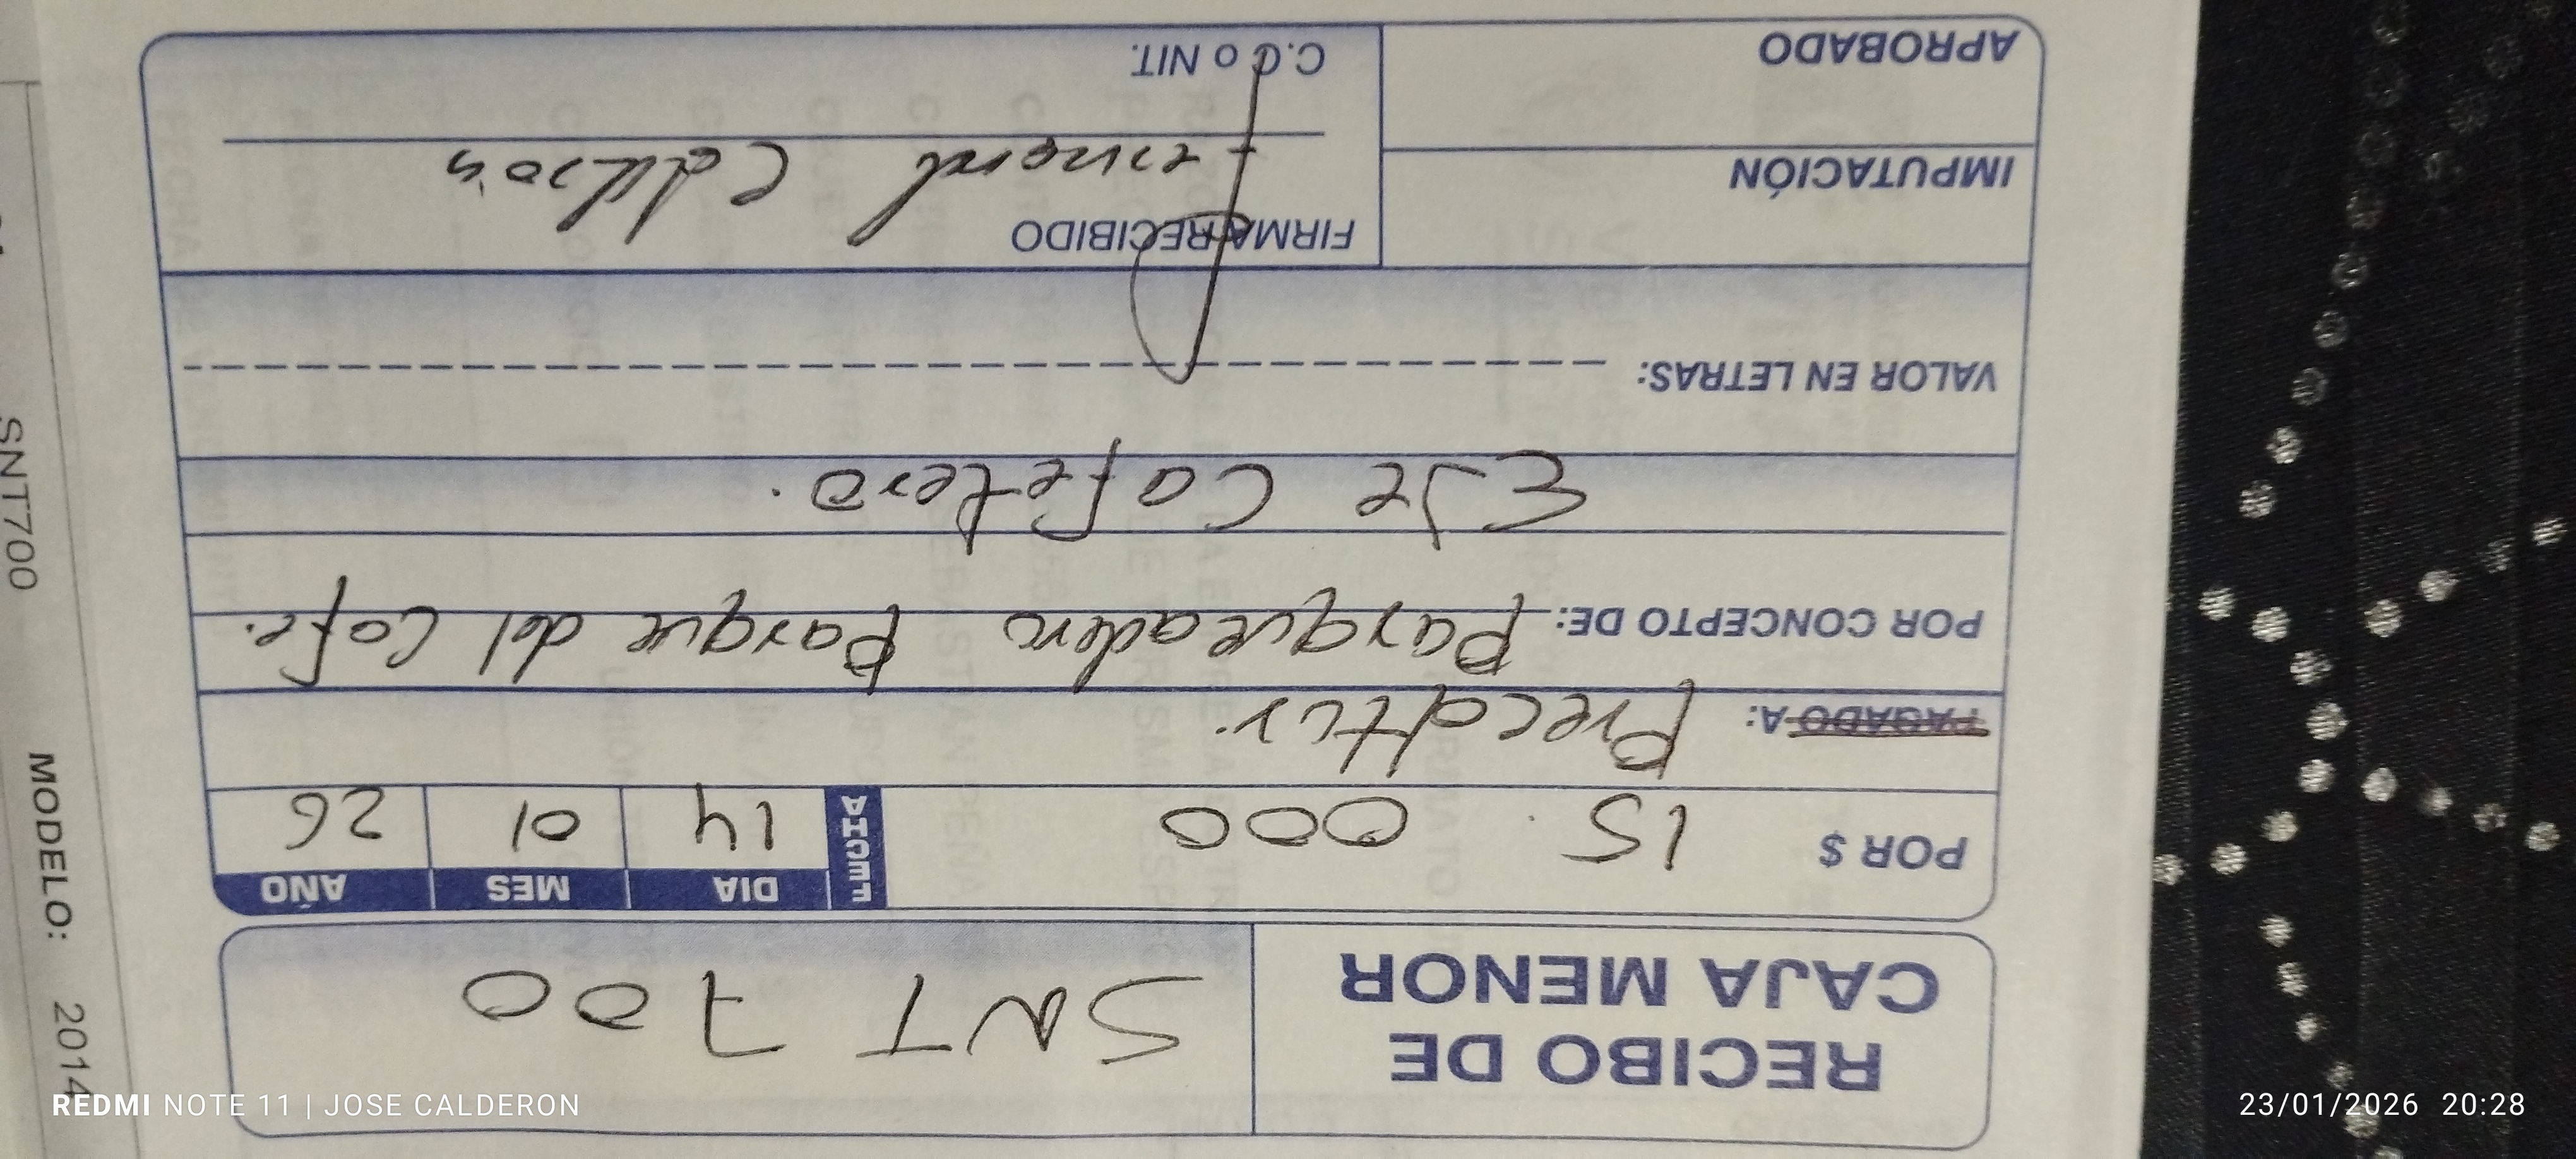 RECIBO DE
CAJA MENOR
SNT 700
POR $ 15.000
FECHA
DIA MES AÑO
14 01 26
PAGADO A: Precoltur.
POR CONCEPTO DE: Parqueadero Parque del Cafe.
EJe Cafetero.
VALOR EN LETRAS:
IMPUTACIÓN
APROBADO
FIRMA RECIBIDO
Fernand Calderon
C.C o NIT.
SNT700
MODELO: 2014
REDMI NOTE 11 | JOSE CALDERON
23/01/2026 20:28